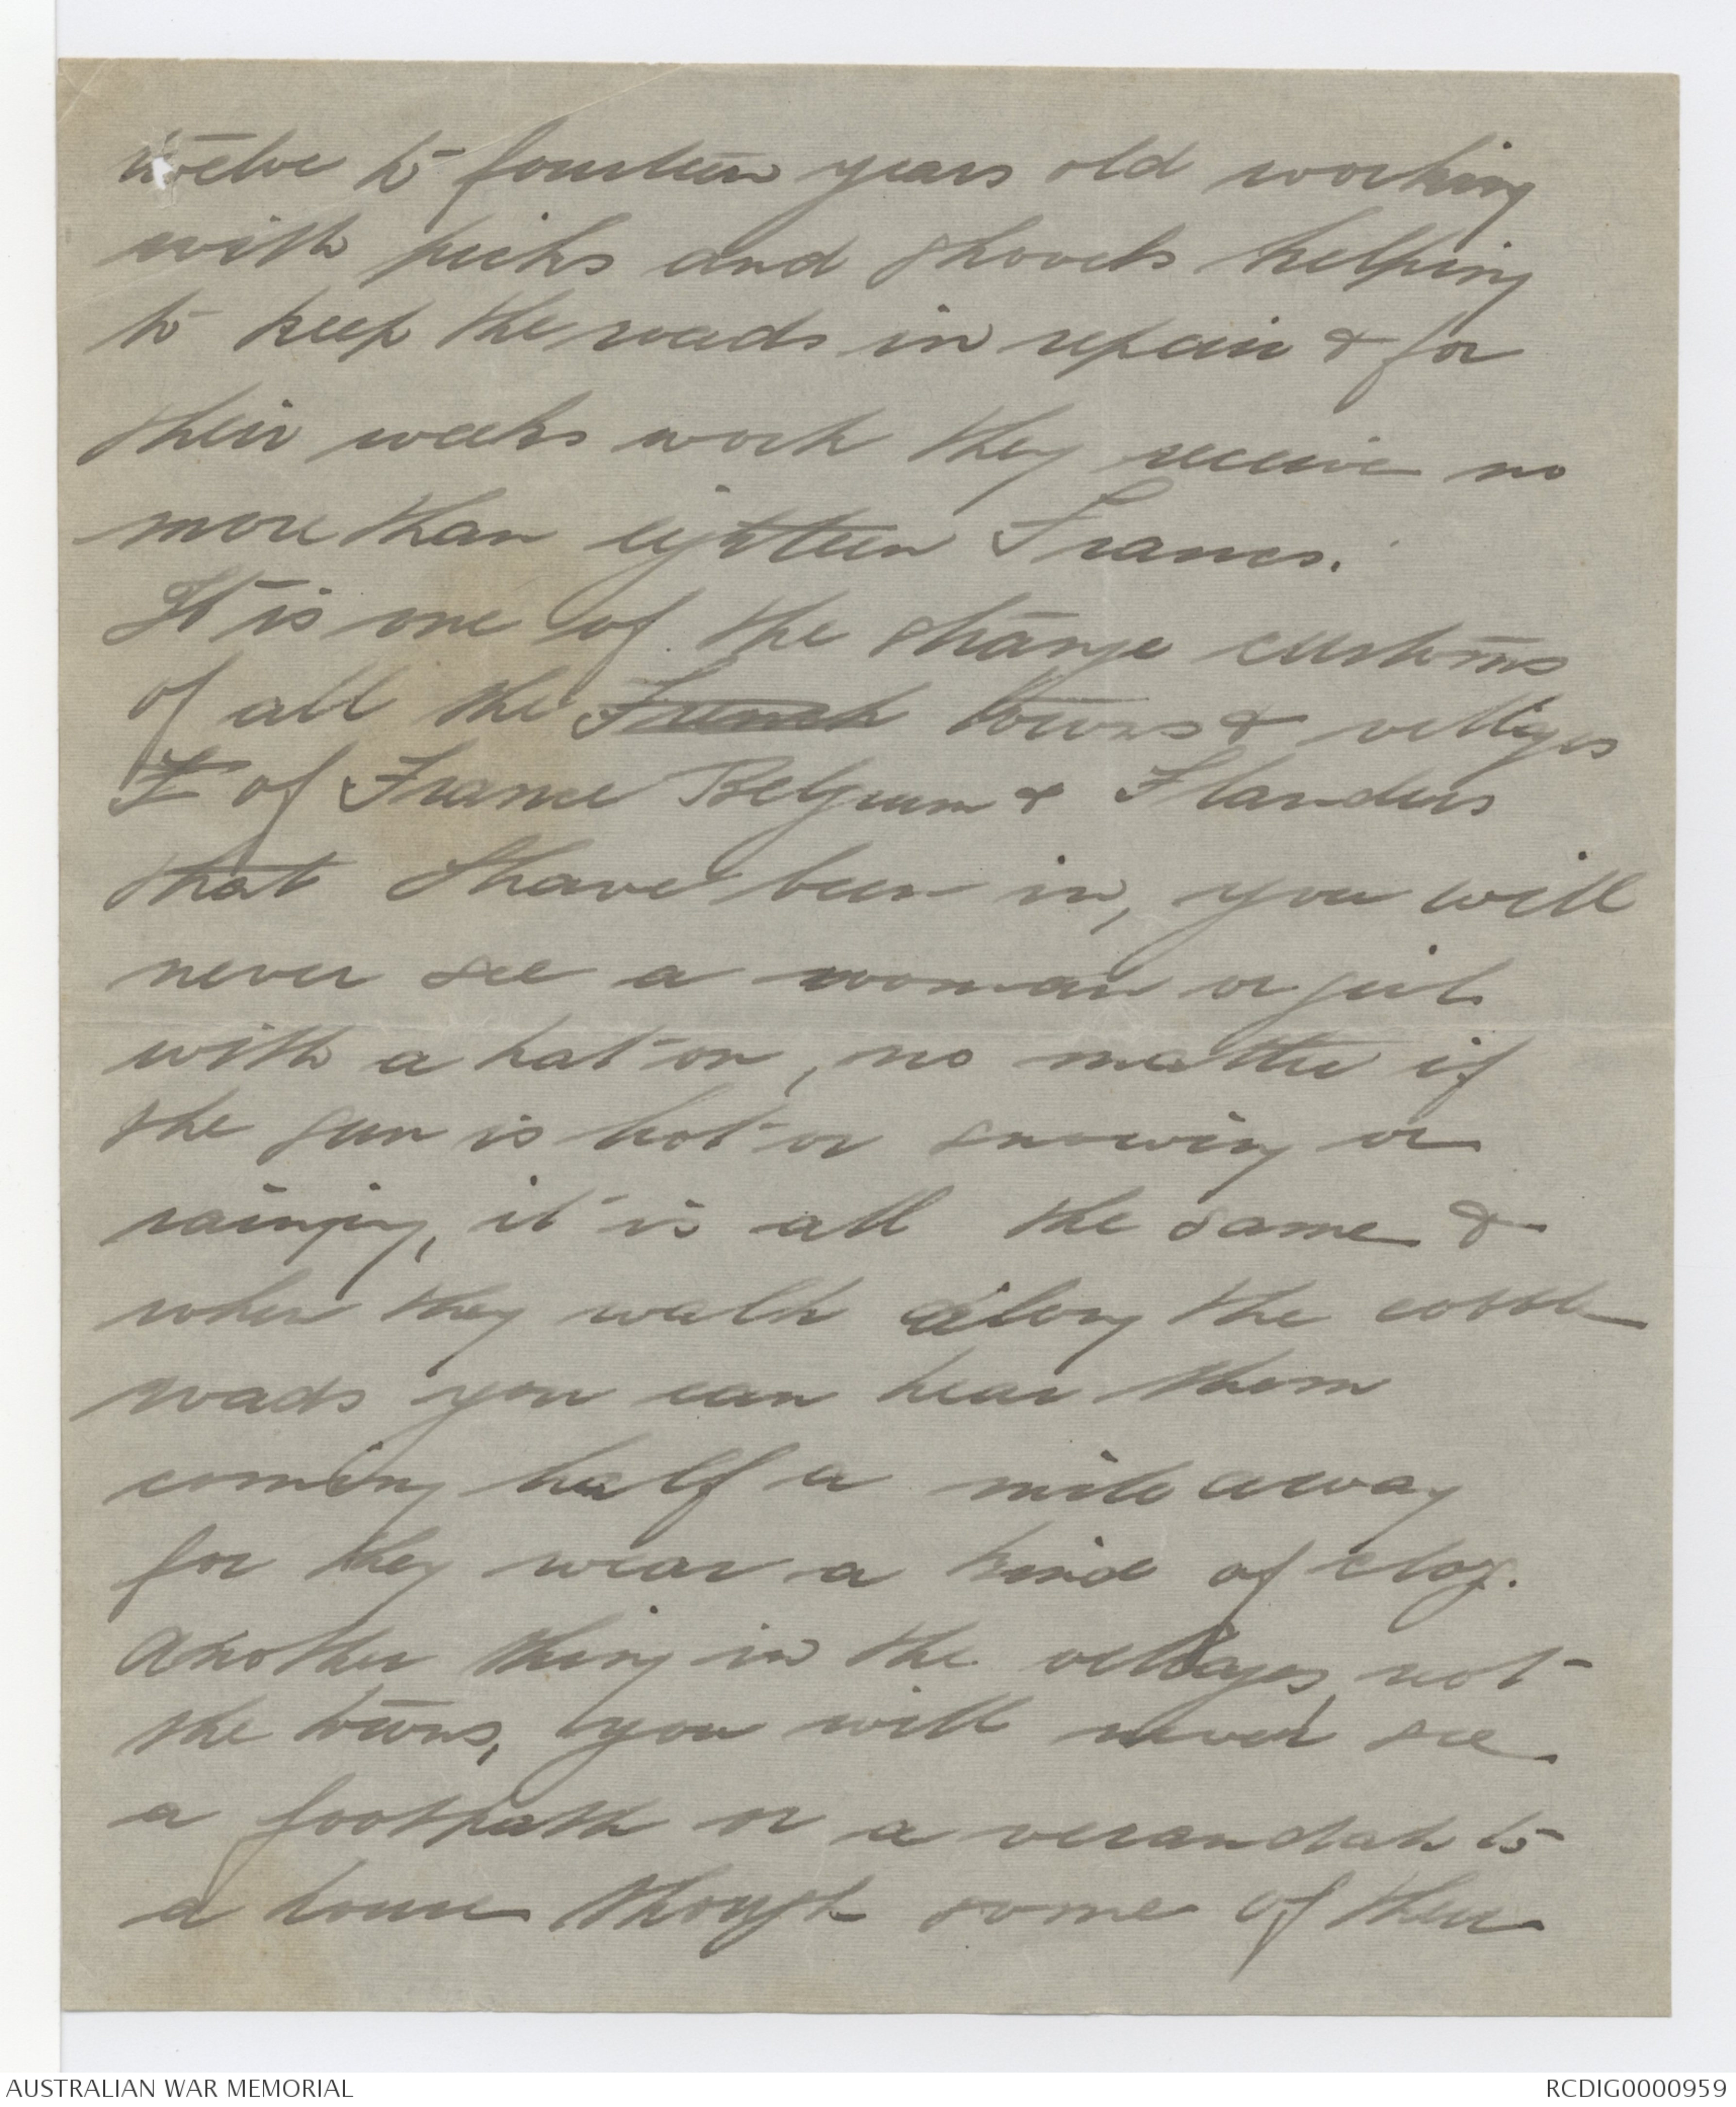 twelve to fourteen years old working
with picks and shovels helping
to keep the roads in repair & for
their weeks work they receive no
more than eighteen Francs.
It is one of the strange customs
of all the French towns & villages
F of France Belgium & Flanders
that I have been in, you will
never see a woman or girl
with a hat on, no matter if
the sun is hot or snowing or
raining, it is all the same &
when they walk along the cobble
roads you can hear them
coming half a mile away
for they wear a kind of clog.
Another thing in the villages, not
the towns, you will never see
a footpath or a verandah to
a house though some of their
AUSTRALIAN WAR MEMORIAL
RCDIG0000959